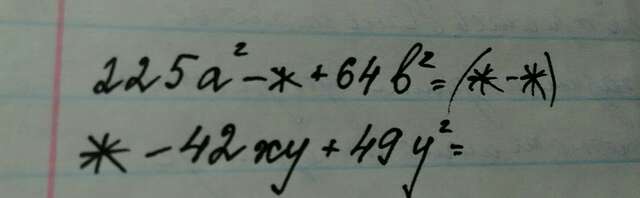 225a² - * + 64b² = (* - *)
* - 42xy + 49y² =